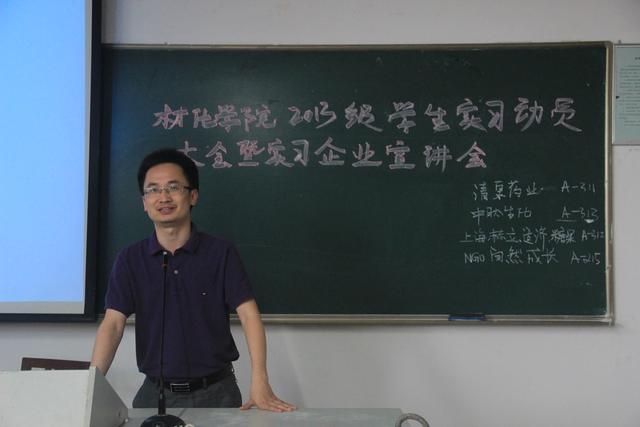 材化学院2013级学生实习动员
大会暨实习企业宣讲会
清 药业 A-311
A-313
上海 A-312
NGO 自然成长 A-215